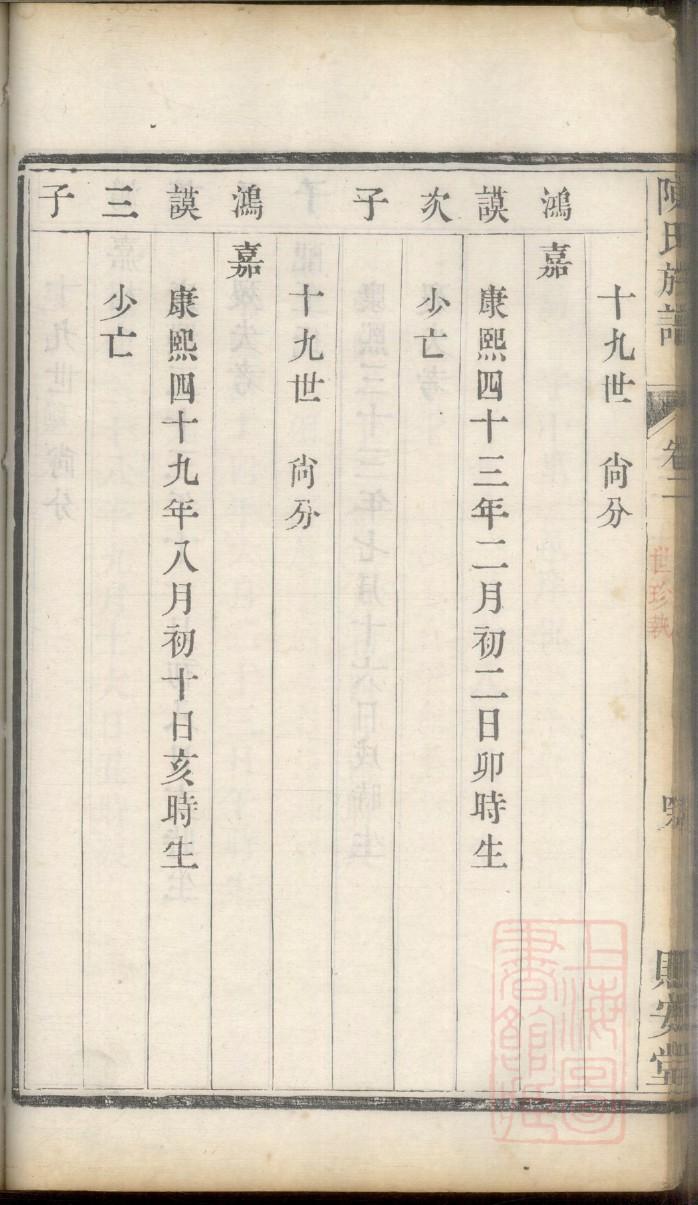 陳氏族譜
卷二
世珍執
安堂
十九世 尙分
鴻謨次子
嘉
康熙四十三年二月初二日卯時生
少亡
十九世 尙分
鴻謨三子
嘉
康熙四十九年八月初十日亥時生
少亡
上海圖書館藏